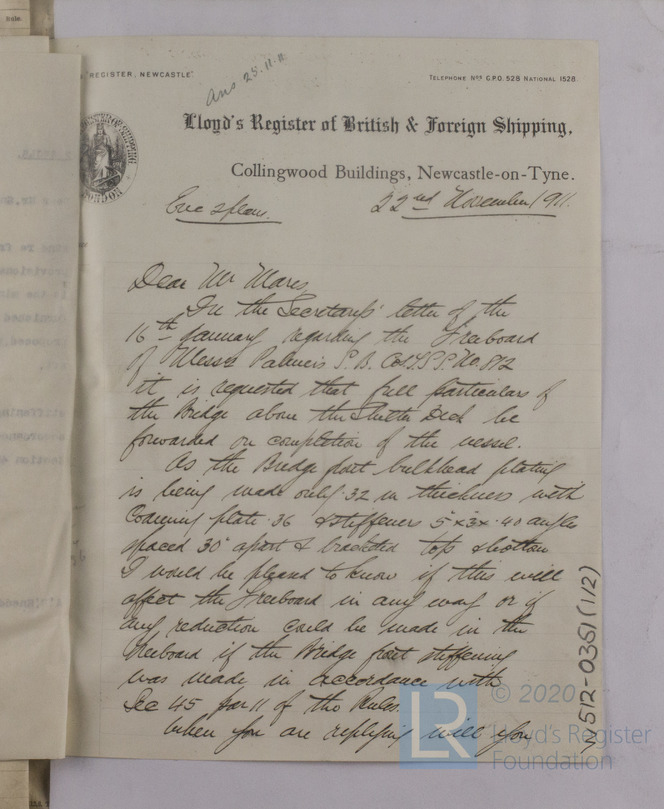 Rule.
"REGISTER, NEWCASTLE"
TELEPHONE Nos G.P.O. 528 NATIONAL 1528.
Ans 25.11.11
Lloyd's Register of British & Foreign Shipping,
Collingwood Buildings, Newcastle-on-Tyne.
LONDON
22nd November 1911.
Dear Mr Mares
In the Secretary's letter of the
16th January regarding the Freeboard
of Messrs Palmers S. B. Co's S.S. No. 812
it is requested that full particulars of
the Bridge above the Shelter Deck be
forwarded on completion of the vessel.
As the Bridge front bulkhead plating
is being made only .32 in thickness with
Coaming plate .36 & stiffeners 5 x 3 x .40 angles
spaced 30" apart & bracketed top & bottom
I would be pleased to know if this will
affect the Freeboard in any way or if
any reduction could be made in the
Freeboard if the Bridge front stiffening
was made in accordance with
Sec 45 par 11 of the Rules.
When you are replying will you
W512-0351(1/2)
LR
© 2020
Lloyd's Register
Foundation